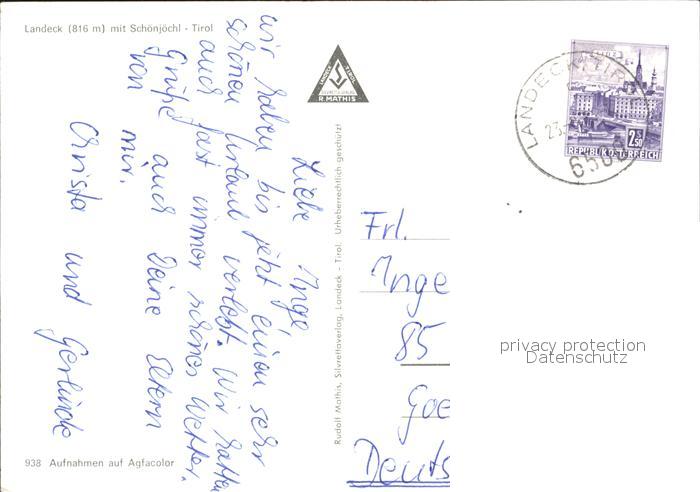 Landeck (816 m) mit Schönjöchl - Tirol
Liebe Inge
wir haben bis jetzt einen sehr
schönen Urlaub verlebt. Wir hatten
auch fast immer schönes Wetter.
Grüße auch Deine Eltern
von mir.
Christa und Gerlinde
938 Aufnahmen auf Agfacolor
R. MATHIS
Rudolf Mathis, Silvrettaverlag, Landeck - Tirol. Urheberrechtlich geschützt
LANDECK, TIROL
23.
650
2.50
REPUBLIK ÖSTERREICH
Frl.
Inge
85
Goe
Deuts
privacy protection
Datenschutz